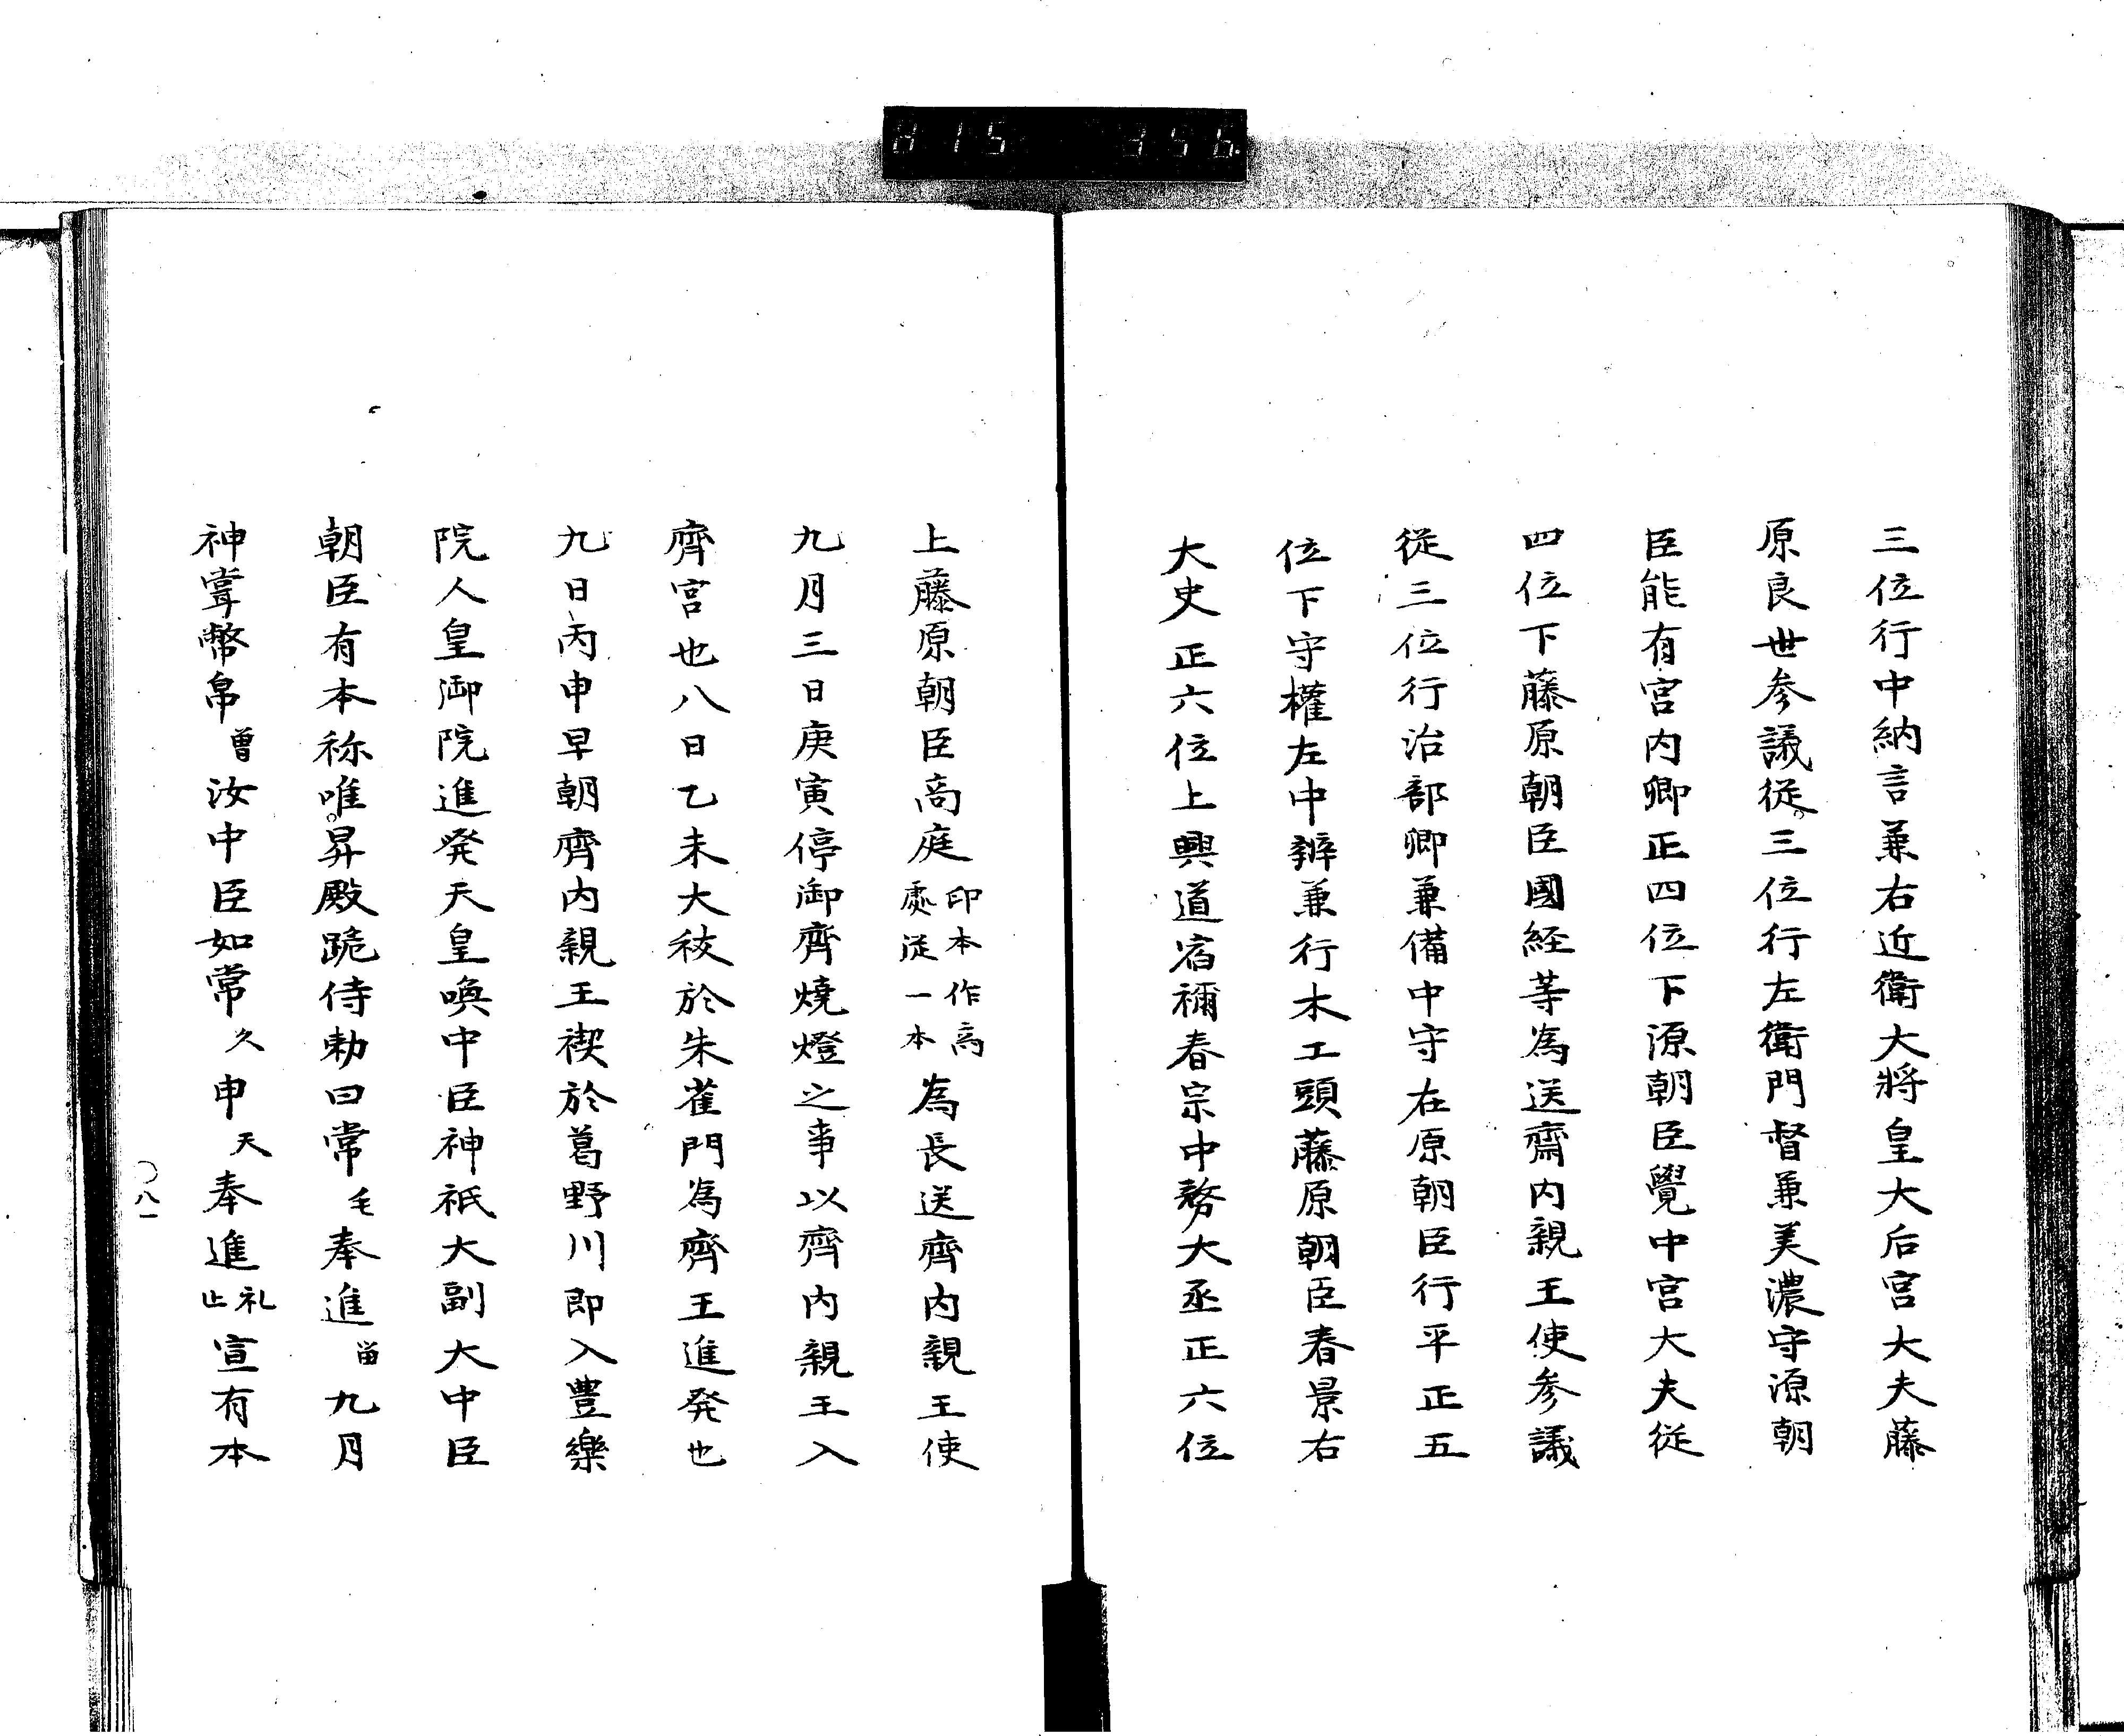 815 356
三位行中納言兼右近衛大将皇大后宮大夫藤
原良世参議従三位行左衛門督兼美濃守源朝
臣能有宮内卿正四位下源朝臣覺中宮大夫従
四位下藤原朝臣國経等為送齋内親王使参議
従三位行治部卿兼備中守在原朝臣行平正五
位下守權左中辨兼行木工頭藤原朝臣春景右
大史正六位上興道宿禰春宗中務大丞正六位
上藤原朝臣高庭印本作高處従一本為長送齊内親王使
九月三日庚寅停御齊燒燈之事以齊内親王入
齊宮也八日乙未大祓於朱雀門為齊王進発也
九日丙申早朝齊内親王禊於葛野川即入豊樂
院人皇御院進発天皇喚中臣神祇大副大中臣
朝臣有本称唯昇殿跪侍勅曰常毛奉進留九月
神嘗幣帛曽汝中臣如常久申天奉進礼止宣有本
〇八一